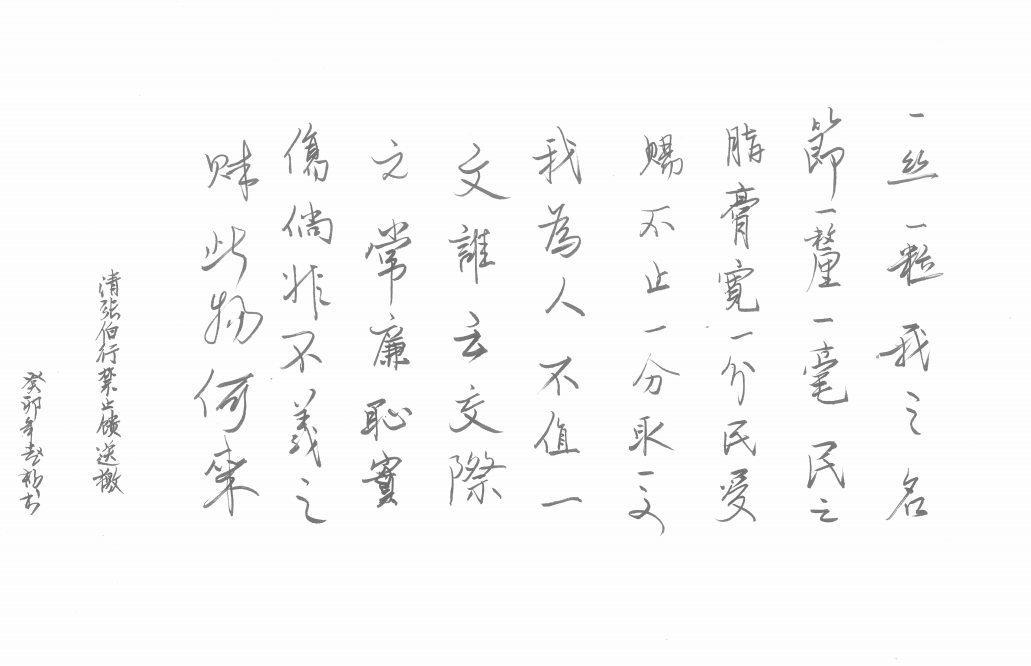 一丝一粒我之名
節一釐一毫民之
脂膏寬一分民受
賜不止一分取一文
我為人不值一
文誰云交際
之常廉恥實
傷倘非不義之
财此物何來
清張伯行禁止饋送檄
癸卯年赵